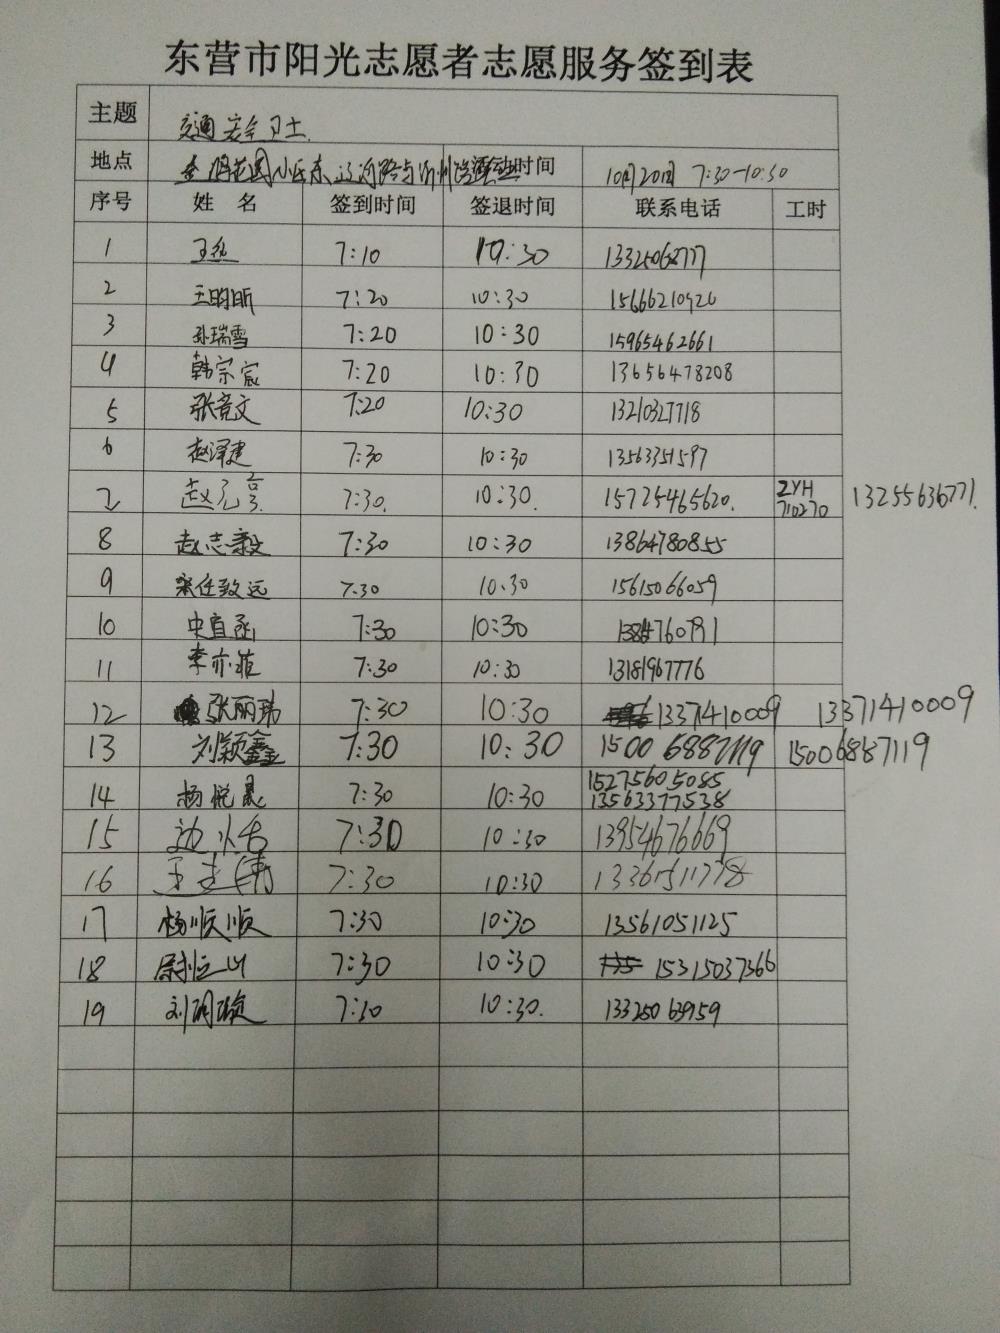 东营市阳光志愿者志愿服务签到表
主题 交通安全卫士
地点 花园小区东 活动时间 10月20日 7:30-10:30
序号 姓名 签到时间 签退时间 联系电话 工时
1 7:10 10:30
2 王昀昕 7:20 10:30
3 孙瑞雪 7:20 10:30 15965462661
4 韩宗宸 7:20 10:30 13656478208
5 张竞文 7:20 10:30 13210327718
6 赵泽建 7:30 10:30 13563351597
7 赵元 7:30. 10:30. 15725465620. ZYH 710270 13255636771.
8 赵志毅 7:30 10:30 13864780855
9 宋任致远 7:30 10:30 15615066059
10 7:30 10:30
11 李亦菲 7:30 10:30 13181967776
12 张丽瑞 7:30 10:30 13371410009 13371410009
13 刘颖鑫 7:30 10:30 15006887119 15006887119
14 杨悦晨 7:30 10:30 15275605085
13563377538
15 7:30 10:30 13954676669
16 7:30 10:30
17 杨顺顺 7:30 10:30 13561051125
18 7:30 10:30 15315037366
19 7:30 10:30.